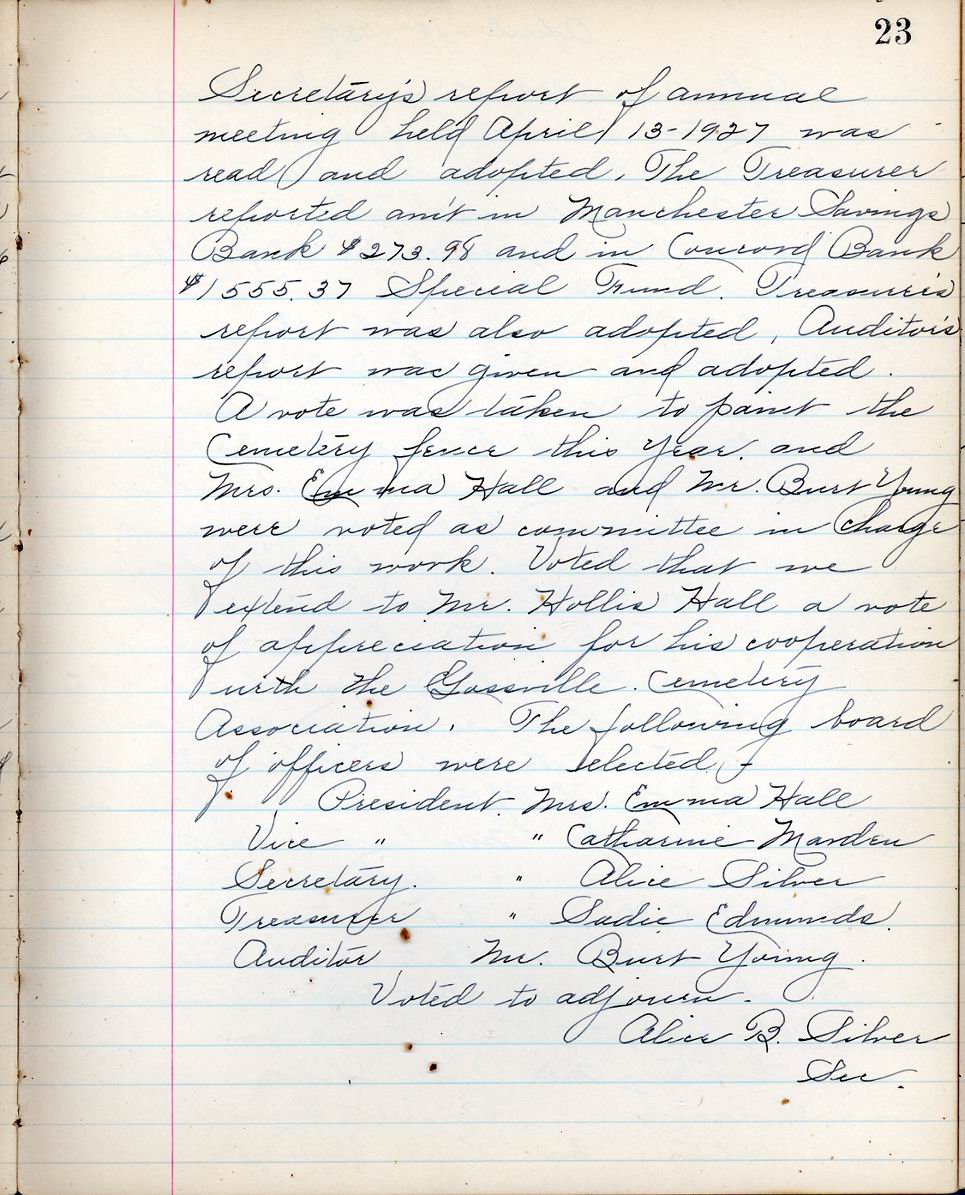 23
Secretary's report of annual
meeting held April 13-1927 was
read and adopted. The Treasurer
reported am't in Manchester Savings
Bank $273.98 and in Concord Bank
$1555.37 Special Fund. Treasurer's
report was also adopted, Auditor's
report was given and adopted.
A vote was taken to paint the
Cemetery fence this year. and
Mrs. Emma Hall and Mr. Burt Young
were voted as committee in charge
of this work. Voted that we
extend to Mr. Hollis Hall a vote
of appreciation for his cooperation
with the Gossville Cemetery
Association. The following board
of officers were elected,-
President Mrs. Emma Hall
Vice " " Catharine Marden
Secretary. " Alice Silver
Treasurer " Sadie Edmunds.
Auditor Mr. Burt Young.
Voted to adjourn.
Alice B. Silver
Sec.